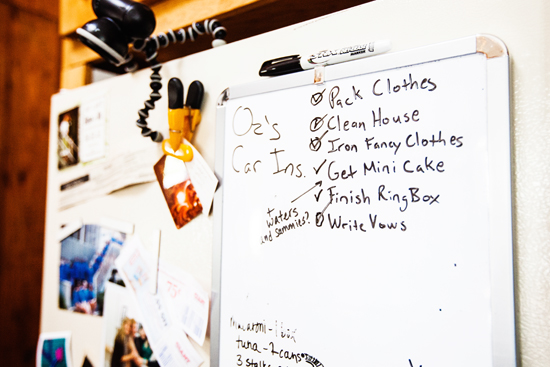 Oz's
Car Ins.
Pack Clothes
Clean House
Iron Fancy Clothes
Get Mini Cake
Finish Ring Box
Write Vows
+
waters
and sammies?
macaroni - 1 box
tuna - 2 cans
3